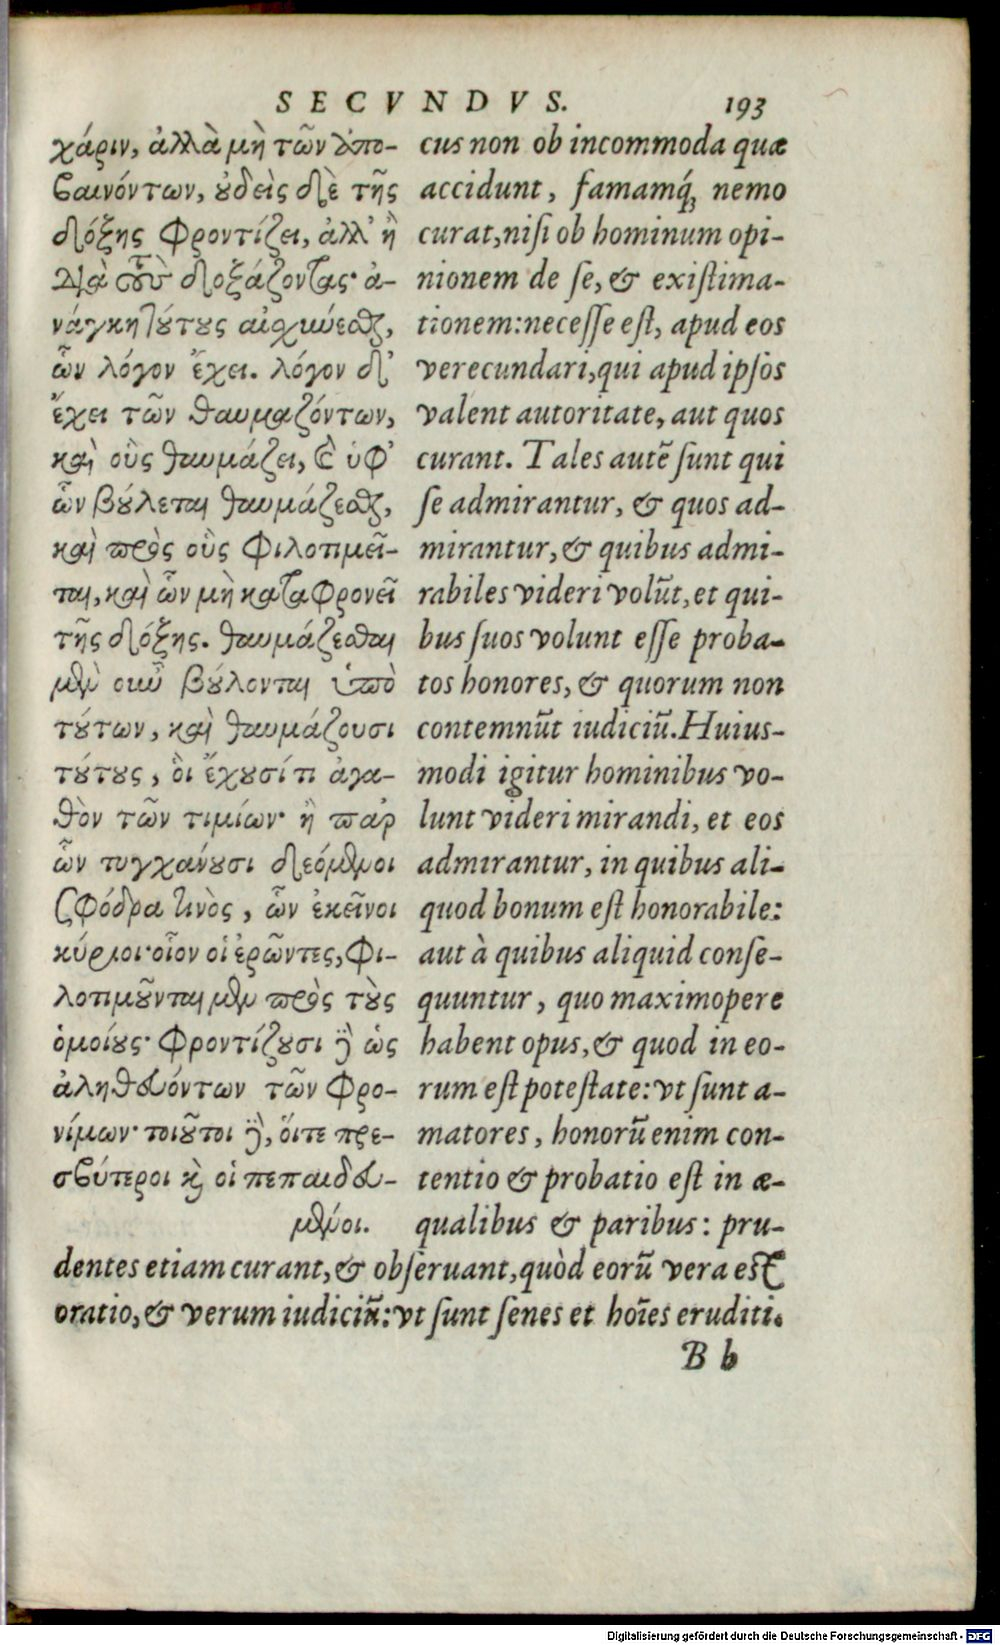 SECVNDVS.
193
χάριν, ἀλλὰ μὴ τῶν ἀπο-
βαινόντων, οὐδεὶς δὲ τῆς
δόξης φροντίζει, ἀλλ' ἢ
διὰ τοὺς δοξάζοντας· ἀ-
νάγκη τούτους αἰσχύνεσθαι,
ὧν λόγον ἔχει. λόγον δ'
ἔχει τῶν θαυμαζόντων,
καὶ οὓς θαυμάζει, καὶ ὑφ'
ὧν βούλεται θαυμάζεσθαι,
καὶ πρὸς οὓς φιλοτιμεῖ-
ται, καὶ ὧν μὴ καταφρονεῖ
τῆς δόξης. θαυμάζεσθαι
μὲν οὖν βούλονται ὑπὸ
τούτων, καὶ θαυμάζουσι
τούτους, ὃι ἔχουσί τι ἀγα-
θὸν τῶν τιμίων· ἢ παρ
ὧν τυγχάνουσι δεόμενοι
σφόδρα τινὸς, ὧν ἐκεῖνοι
κύριοι· οἷον οἱ ἐρῶντες, φι-
λοτιμοῦνται μὲν πρὸς τοὺς
ὁμοίους· φροντίζουσι δὲ ὡς
ἀληθευόντων τῶν φρο-
νίμων· τοιοῦτοι δὲ, ὅιτε πρε-
σβύτεροι καὶ οἱ πεπαιδευ-
μένοι.
cus non ob incommoda quæ
accidunt, famamq́; nemo
curat, nisi ob hominum opi-
nionem de se, & existima-
tionem: necesse est, apud eos
verecundari, qui apud ipsos
valent autoritate, aut quos
curant. Tales autē sunt qui
se admirantur, & quos ad-
mirantur, & quibus admi-
rabiles videri volūt, et qui-
bus suos volunt esse proba-
tos honores, & quorum non
contemnūt iudiciū. Huius-
modi igitur hominibus vo-
lunt videri mirandi, et eos
admirantur, in quibus ali-
quod bonum est honorabile:
aut à quibus aliquid conse-
quuntur, quo maximopere
habent opus, & quod in eo-
rum est potestate: vt sunt a-
matores, honorū enim con-
tentio & probatio est in æ-
qualibus & paribus: pru-
dentes etiam curant, & obseruant, quòd eorū vera est
oratio, & verum iudiciū: vt sunt senes et hoīes eruditi.
B b
Digitalisierung gefördert durch die Deutsche Forschungsgemeinschaft - DFG